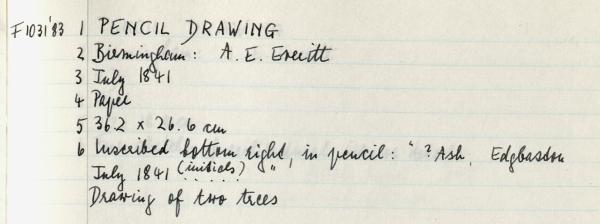 F1031'83 1 PENCIL DRAWING
2 Birmingham: A. E. Everitt
3 July 1841
4 Paper
5 36.2 x 26.6 cm
6 Inscribed bottom right, in pencil: "?Ash, Edgbaston
July 1841 (initials)".
Drawing of two trees